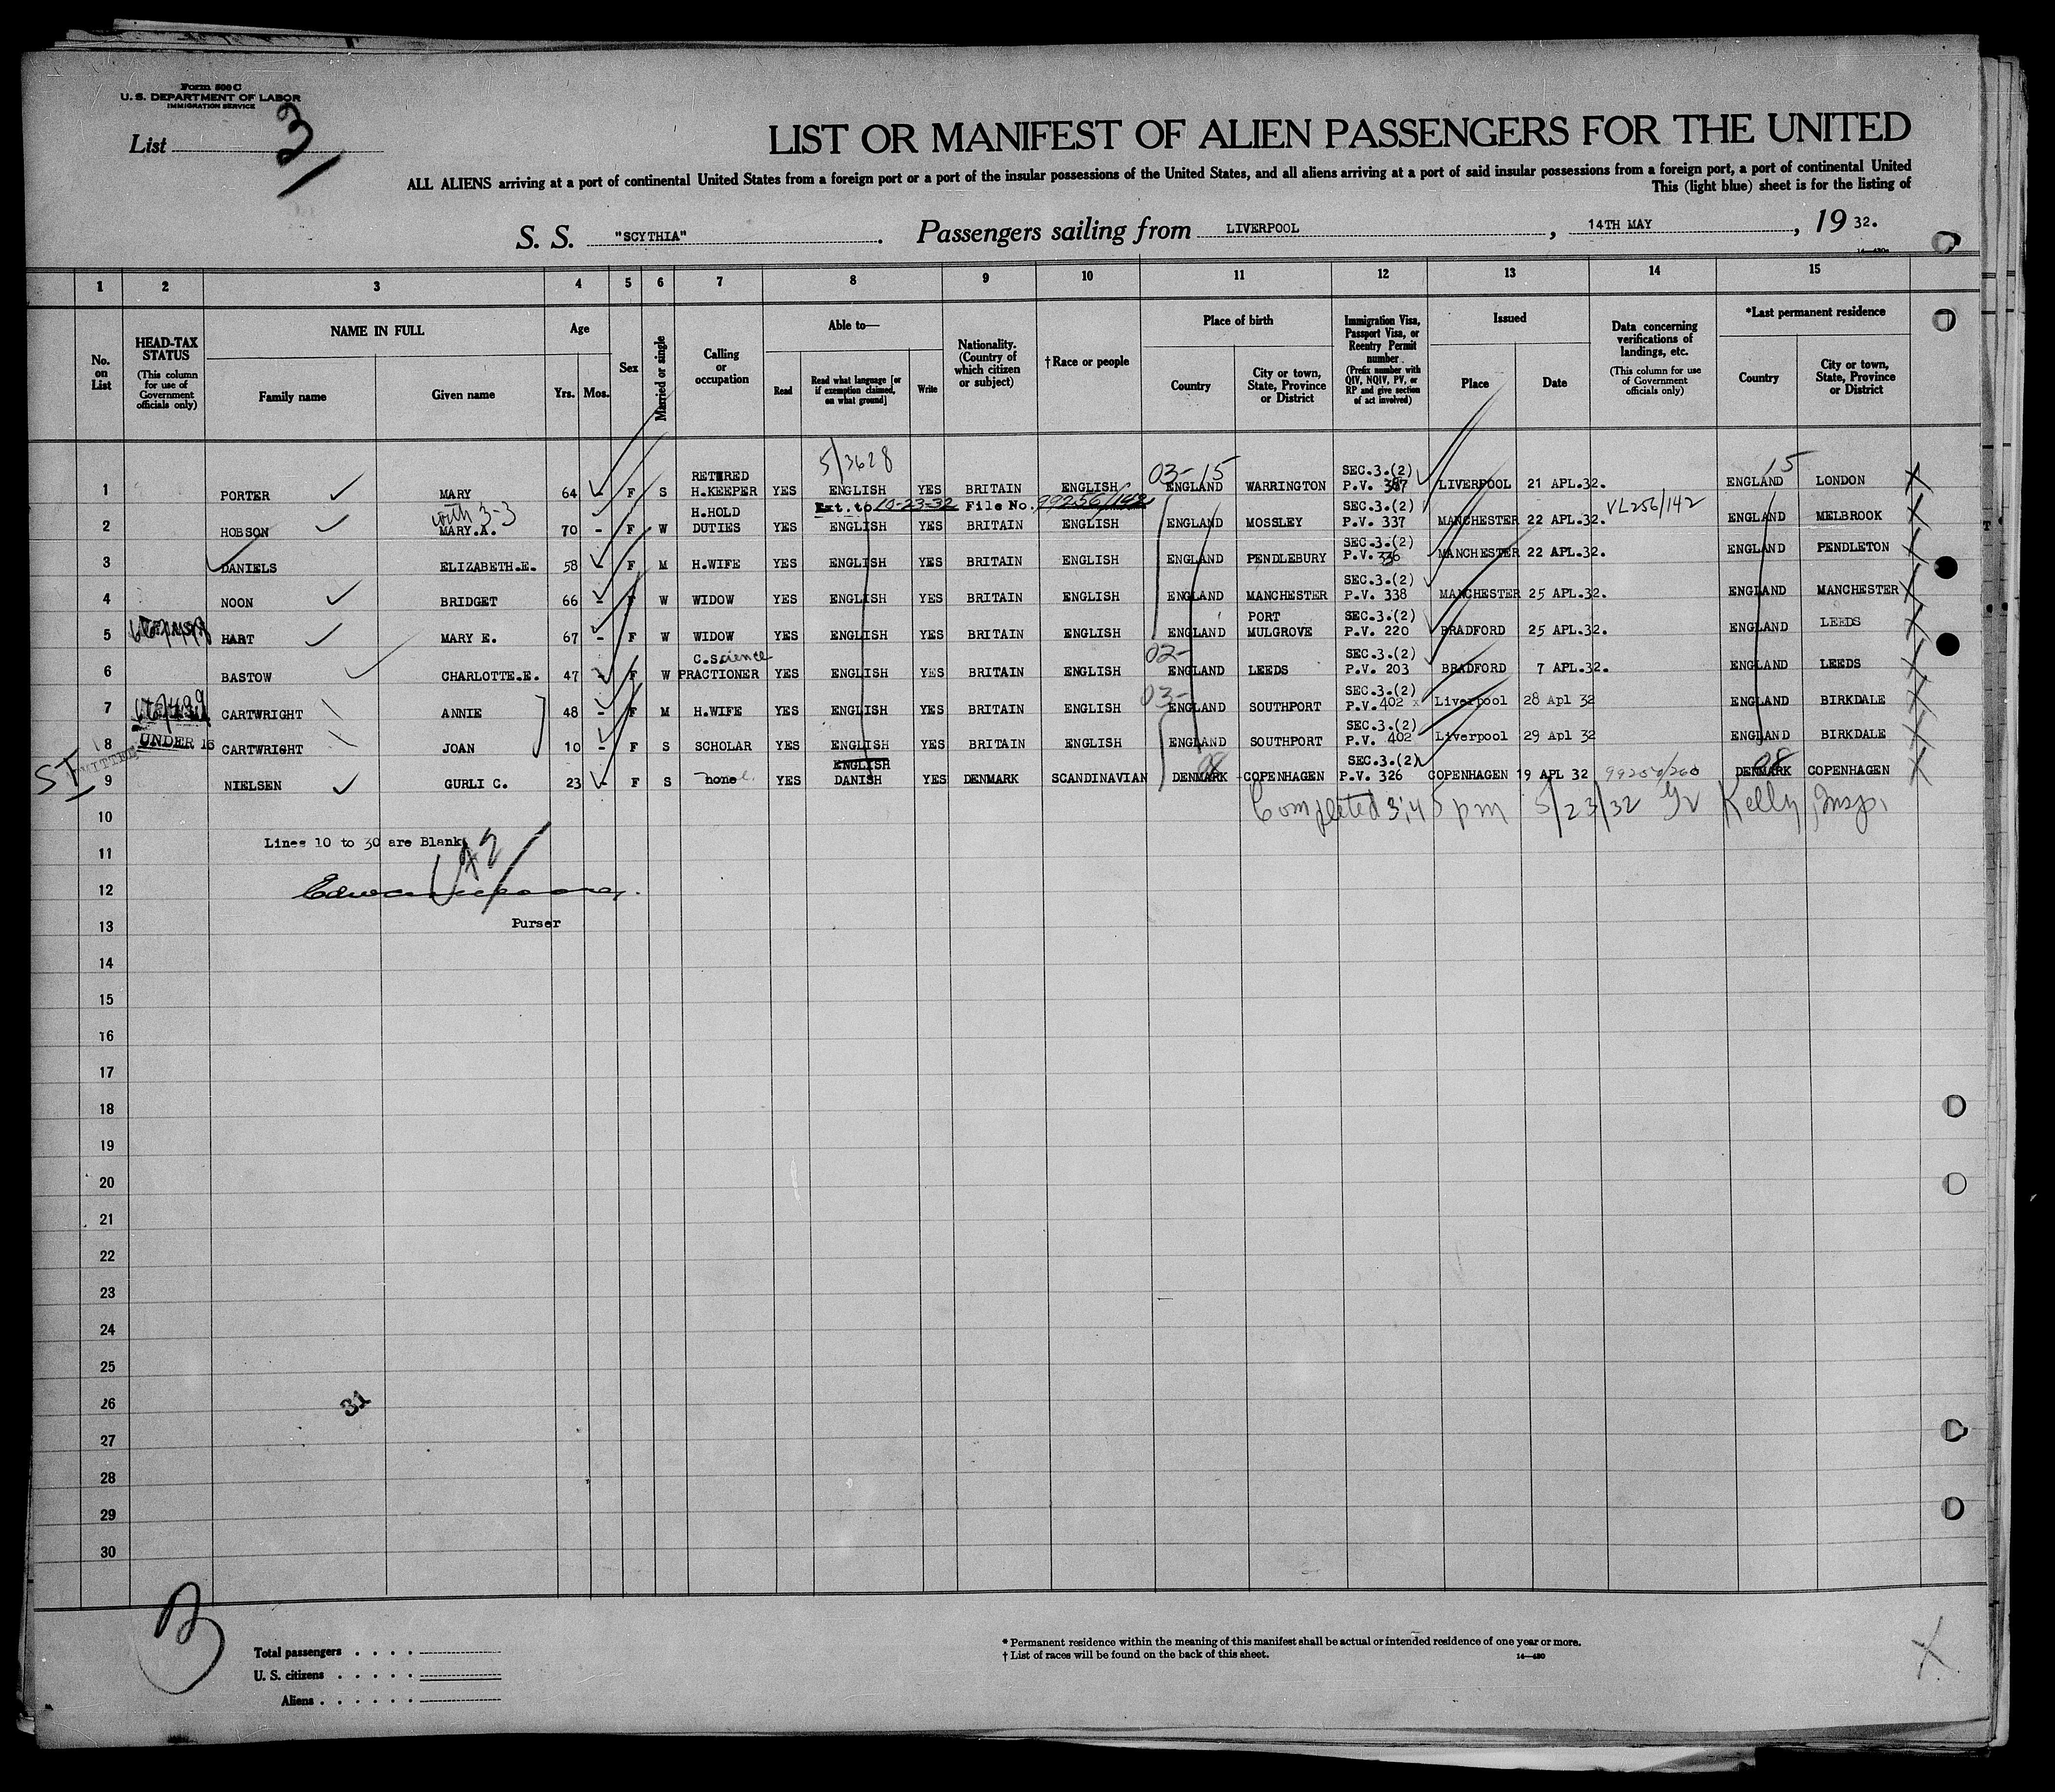 Form 500 C
U. S. DEPARTMENT OF LABOR
IMMIGRATION SERVICE
List 3
LIST OR MANIFEST OF ALIEN PASSENGERS FOR THE UNITED
ALL ALIENS arriving at a port of continental United States from a foreign port or a port of the insular possessions of the United States, and all aliens arriving at a port of said insular possessions from a foreign port, a port of continental United
This (light blue) sheet is for the listing of
S. S. "SCYTHIA". Passengers sailing from LIVERPOOL, 14TH MAY, 19 32.
14-430
1 2 3 4 5 6 7 8 9 10 11 12 13 14 15
No. on List
HEAD-TAX STATUS (This column for use of Government officials only)
NAME IN FULL
Family name
Given name
Age
Yrs. Mos.
Sex
Married or single
Calling or occupation
Able to—
Read
Read what language [or if exemption claimed, on what ground]
Write
Nationality. (Country of which citizen or subject)
†Race or people
Place of birth
Country
City or town, State, Province or District
Immigration Visa, Passport Visa, or Reentry Permit number (Prefix number with QIV, NQIV, PV, or RP and give section of act involved)
Issued
Place
Date
Data concerning verifications of landings, etc. (This column for use of Government officials only)
*Last permanent residence
Country
City or town, State, Province or District
5/3628 03-15 15
1 PORTER MARY 64 - F S RETIRED H.KEEPER YES ENGLISH YES BRITAIN ENGLISH ENGLAND WARRINGTON SEC.3.(2) P.V. 387 LIVERPOOL 21 APL.32. ENGLAND LONDON
with 3-3 Ext. to 10-23-32 File No. 99256/142 VL256/142
2 HOBSON MARY.A. 70 - F W H.HOLD DUTIES YES ENGLISH YES BRITAIN ENGLISH ENGLAND MOSSLEY SEC.3.(2) P.V. 337 MANCHESTER 22 APL.32. ENGLAND MELBROOK
3 DANIELS ELIZABETH.E. 58 - F M H.WIFE YES ENGLISH YES BRITAIN ENGLISH ENGLAND PENDLEBURY SEC.3.(2) P.V. 336 MANCHESTER 22 APL.32. ENGLAND PENDLETON
4 NOON BRIDGET 66 - F W WIDOW YES ENGLISH YES BRITAIN ENGLISH ENGLAND MANCHESTER SEC.3.(2) P.V. 338 MANCHESTER 25 APL.32. ENGLAND MANCHESTER
5 HART MARY E. 67 - F W WIDOW YES ENGLISH YES BRITAIN ENGLISH ENGLAND PORT MULGROVE SEC.3.(2) P.V. 220 BRADFORD 25 APL.32. ENGLAND LEEDS
02-
6 BASTOW CHARLOTTE.E. 47 - F W C.Science PRACTIONER YES ENGLISH YES BRITAIN ENGLISH ENGLAND LEEDS SEC.3.(2) P.V. 203 BRADFORD 7 APL.32. ENGLAND LEEDS
03-
7 CARTWRIGHT ANNIE 48 - F M H.WIFE YES ENGLISH YES BRITAIN ENGLISH ENGLAND SOUTHPORT SEC.3.(2) P.V. 402 Liverpool 28 Apl 32 ENGLAND BIRKDALE
8 UNDER 16 CARTWRIGHT JOAN 10 - F S SCHOLAR YES ENGLISH YES BRITAIN ENGLISH ENGLAND SOUTHPORT SEC.3.(2) P.V. 402 Liverpool 29 Apl 32 ENGLAND BIRKDALE
ST
9 NIELSEN GURLI C. 23 - F S none YES ENGLISH DANISH YES DENMARK SCANDINAVIAN 08 DENMARK COPENHAGEN SEC.3.(2) P.V. 326 COPENHAGEN 19 APL 32 99250/260 08 DENMARK COPENHAGEN
10 Completed 3;45 pm 5/23/32 Kelly, Insp.
11 Lines 10 to 30 are Blank
12
13 Purser
14
15
16
17
18
19
20
21
22
23
24
25
26 31
27
28
29
30
Total passengers . . . .
U. S. citizens . . . . .
Aliens . . . . . .
* Permanent residence within the meaning of this manifest shall be actual or intended residence of one year or more.
† List of races will be found on the back of this sheet.
14—430